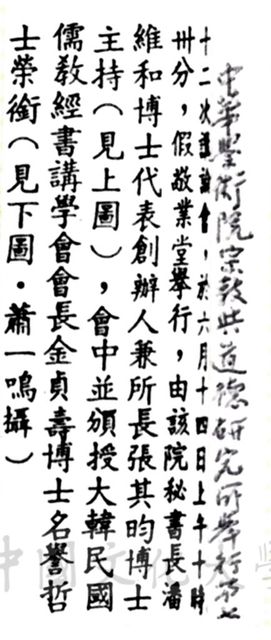 中華學術院宗教與道德研究所舉行第七
十二次議論會，於六月十四日上午十時
卅分，假敬業堂舉行，由該院秘書長潘
維和博士代表創辦人兼所長張其昀博士
主持（見上圖），會中並頒授大韓民國
儒教經書講學會會長金貞壽博士名譽哲
士榮銜（見下圖．蕭一鳴攝）
中國文化大學